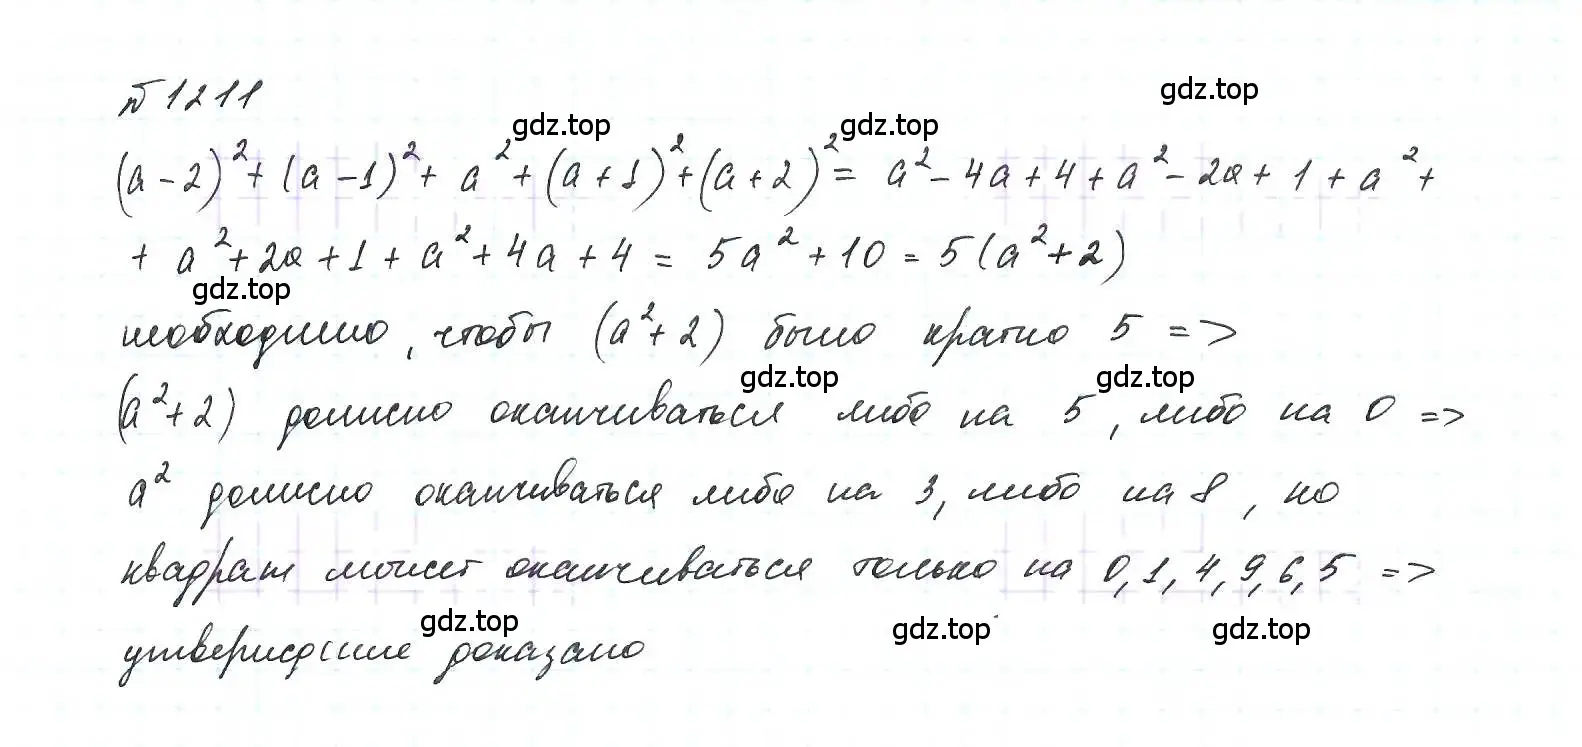 №1211
gdz.top
gdz.top gdz.top
(a-2)² + (a-1)² + a² + (a+1)² + (a+2)² = a² - 4a + 4 + a² - 2a + 1 + a² +
+ a² + 2a + 1 + a² + 4a + 4 = 5a² + 10 = 5(a² + 2)
gdz.top
необходимо, чтобы (a² + 2) было кратно 5 =>
gdz.top gdz.top
(a² + 2) должно оканчиваться либо на 5, либо на 0 =>
a² должно оканчиваться либо на 3, либо на 8, но
квадрат может оканчиваться только на 0, 1, 4, 9, 6, 5 =>
gdz.top gdz.top gdz.top
утверждение доказано